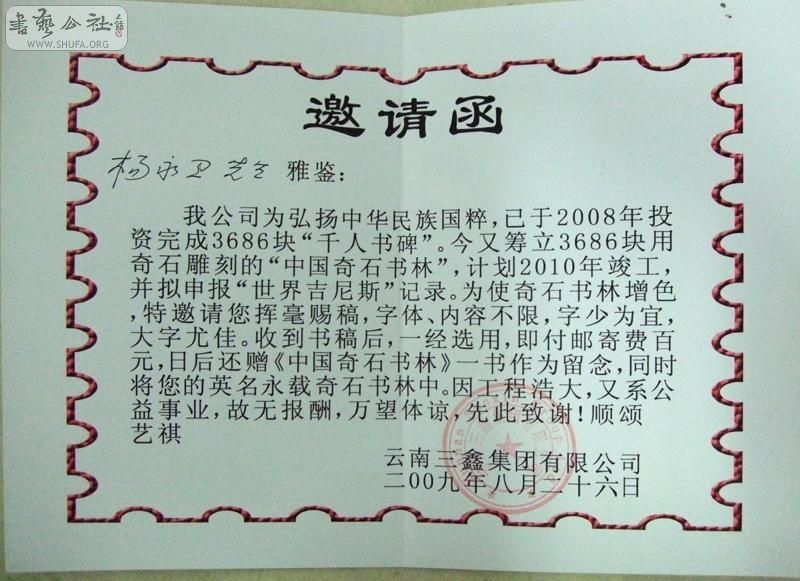 書藝公社
WWW.SHUFA.ORG
邀请函
杨永卫 先生 雅鉴：
我公司为弘扬中华民族国粹，已于2008年投
资完成3686块“千人书碑”。今又筹立3686块用
奇石雕刻的“中国奇石书林”，计划2010年竣工，
并拟申报“世界吉尼斯”记录。为使奇石书林增色
，特邀请您挥毫赐稿，字体、内容不限，字少为宜，
大字尤佳。收到书稿后，一经选用，即付邮寄费百
元，日后还赠《中国奇石书林》一书作为留念，同时
将您的英名永载奇石书林中。因工程浩大，又系公
益事业，故无报酬，万望体谅，先此致谢！顺颂
艺祺
云南三鑫集团有限公司
二00九年八月二十六日